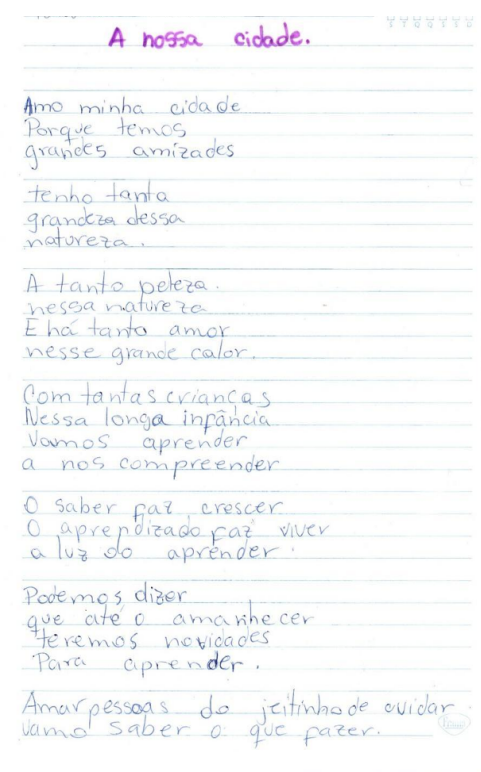 A nossa cidade.
Amo minha cidade
Porque temos
grandes amizades
tenho tanta
grandeza dessa
natureza.
A tanto peleza.
nessa natureza
E há tanto amor
nesse grande calor.
Com tantas crianças
Nessa longa infância
Vamos aprender
a nos compreender
O saber faz crescer
O aprendizado faz viver
a luz do aprender.
Podemos dizer
que até o amanhecer
teremos novidades
Para aprender.
Amar pessoas do jeitinho de cuidar
Vamo saber o que fazer.